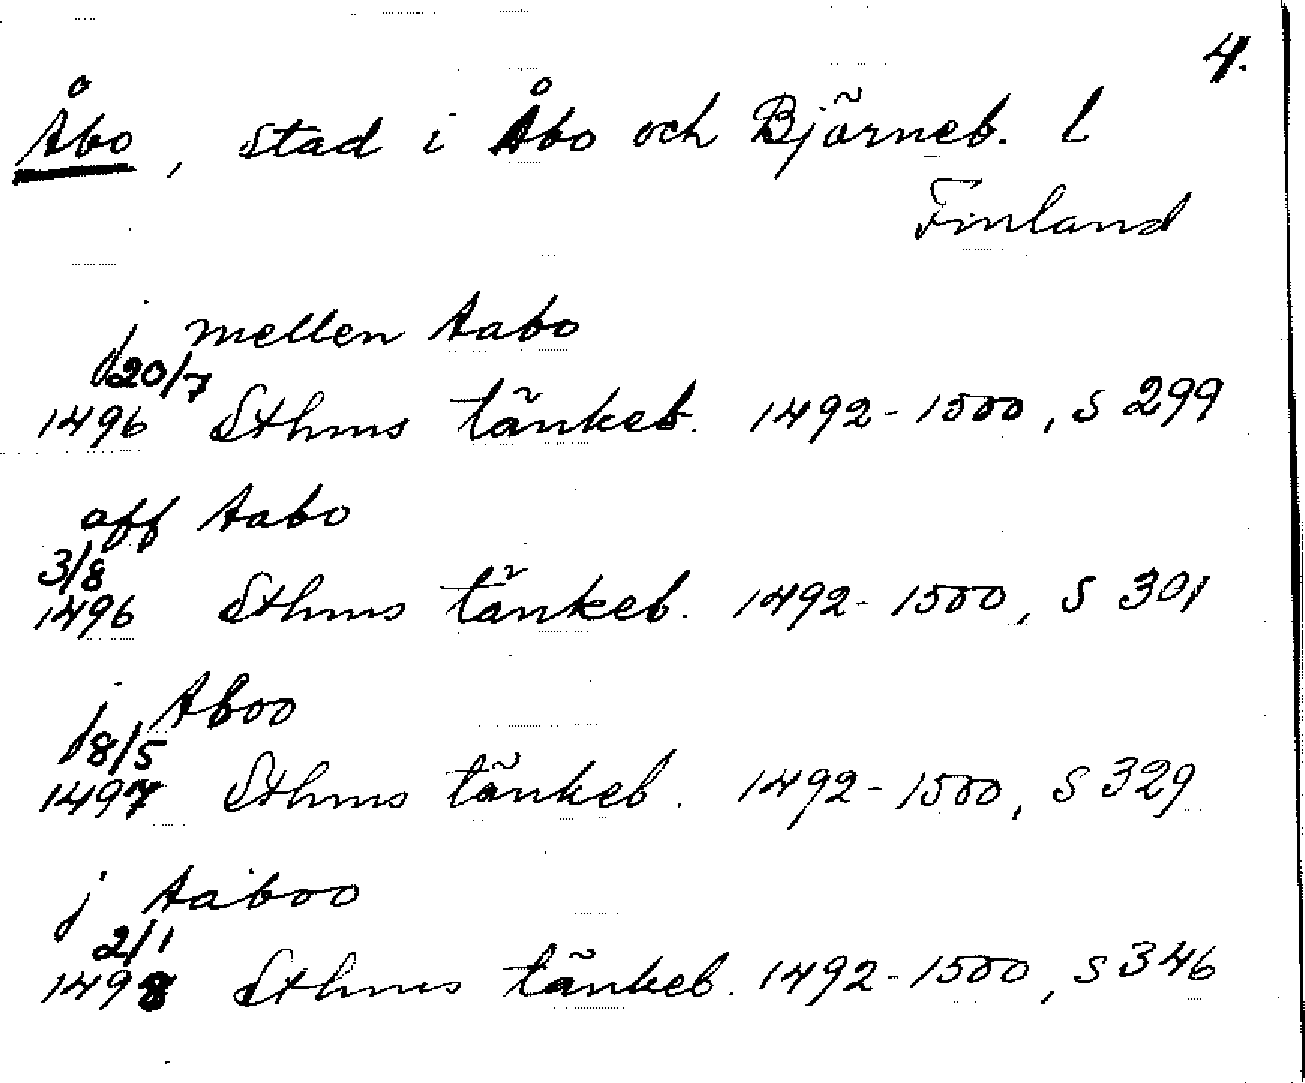 4.
Åbo, stad i Åbo och Björneb. l
Finland
j mellen Aabo
20/7
1496 Sthms tänkeb. 1492-1500, s 299
aff Aabo
3/8
1496 Sthms tänkeb. 1492-1500, s 301
j Aboo
8/5
1497 Sthms tänkeb. 1492-1500, s 329
j Aaboo
2/1
1498 Sthms tänkeb. 1492-1500, s 346